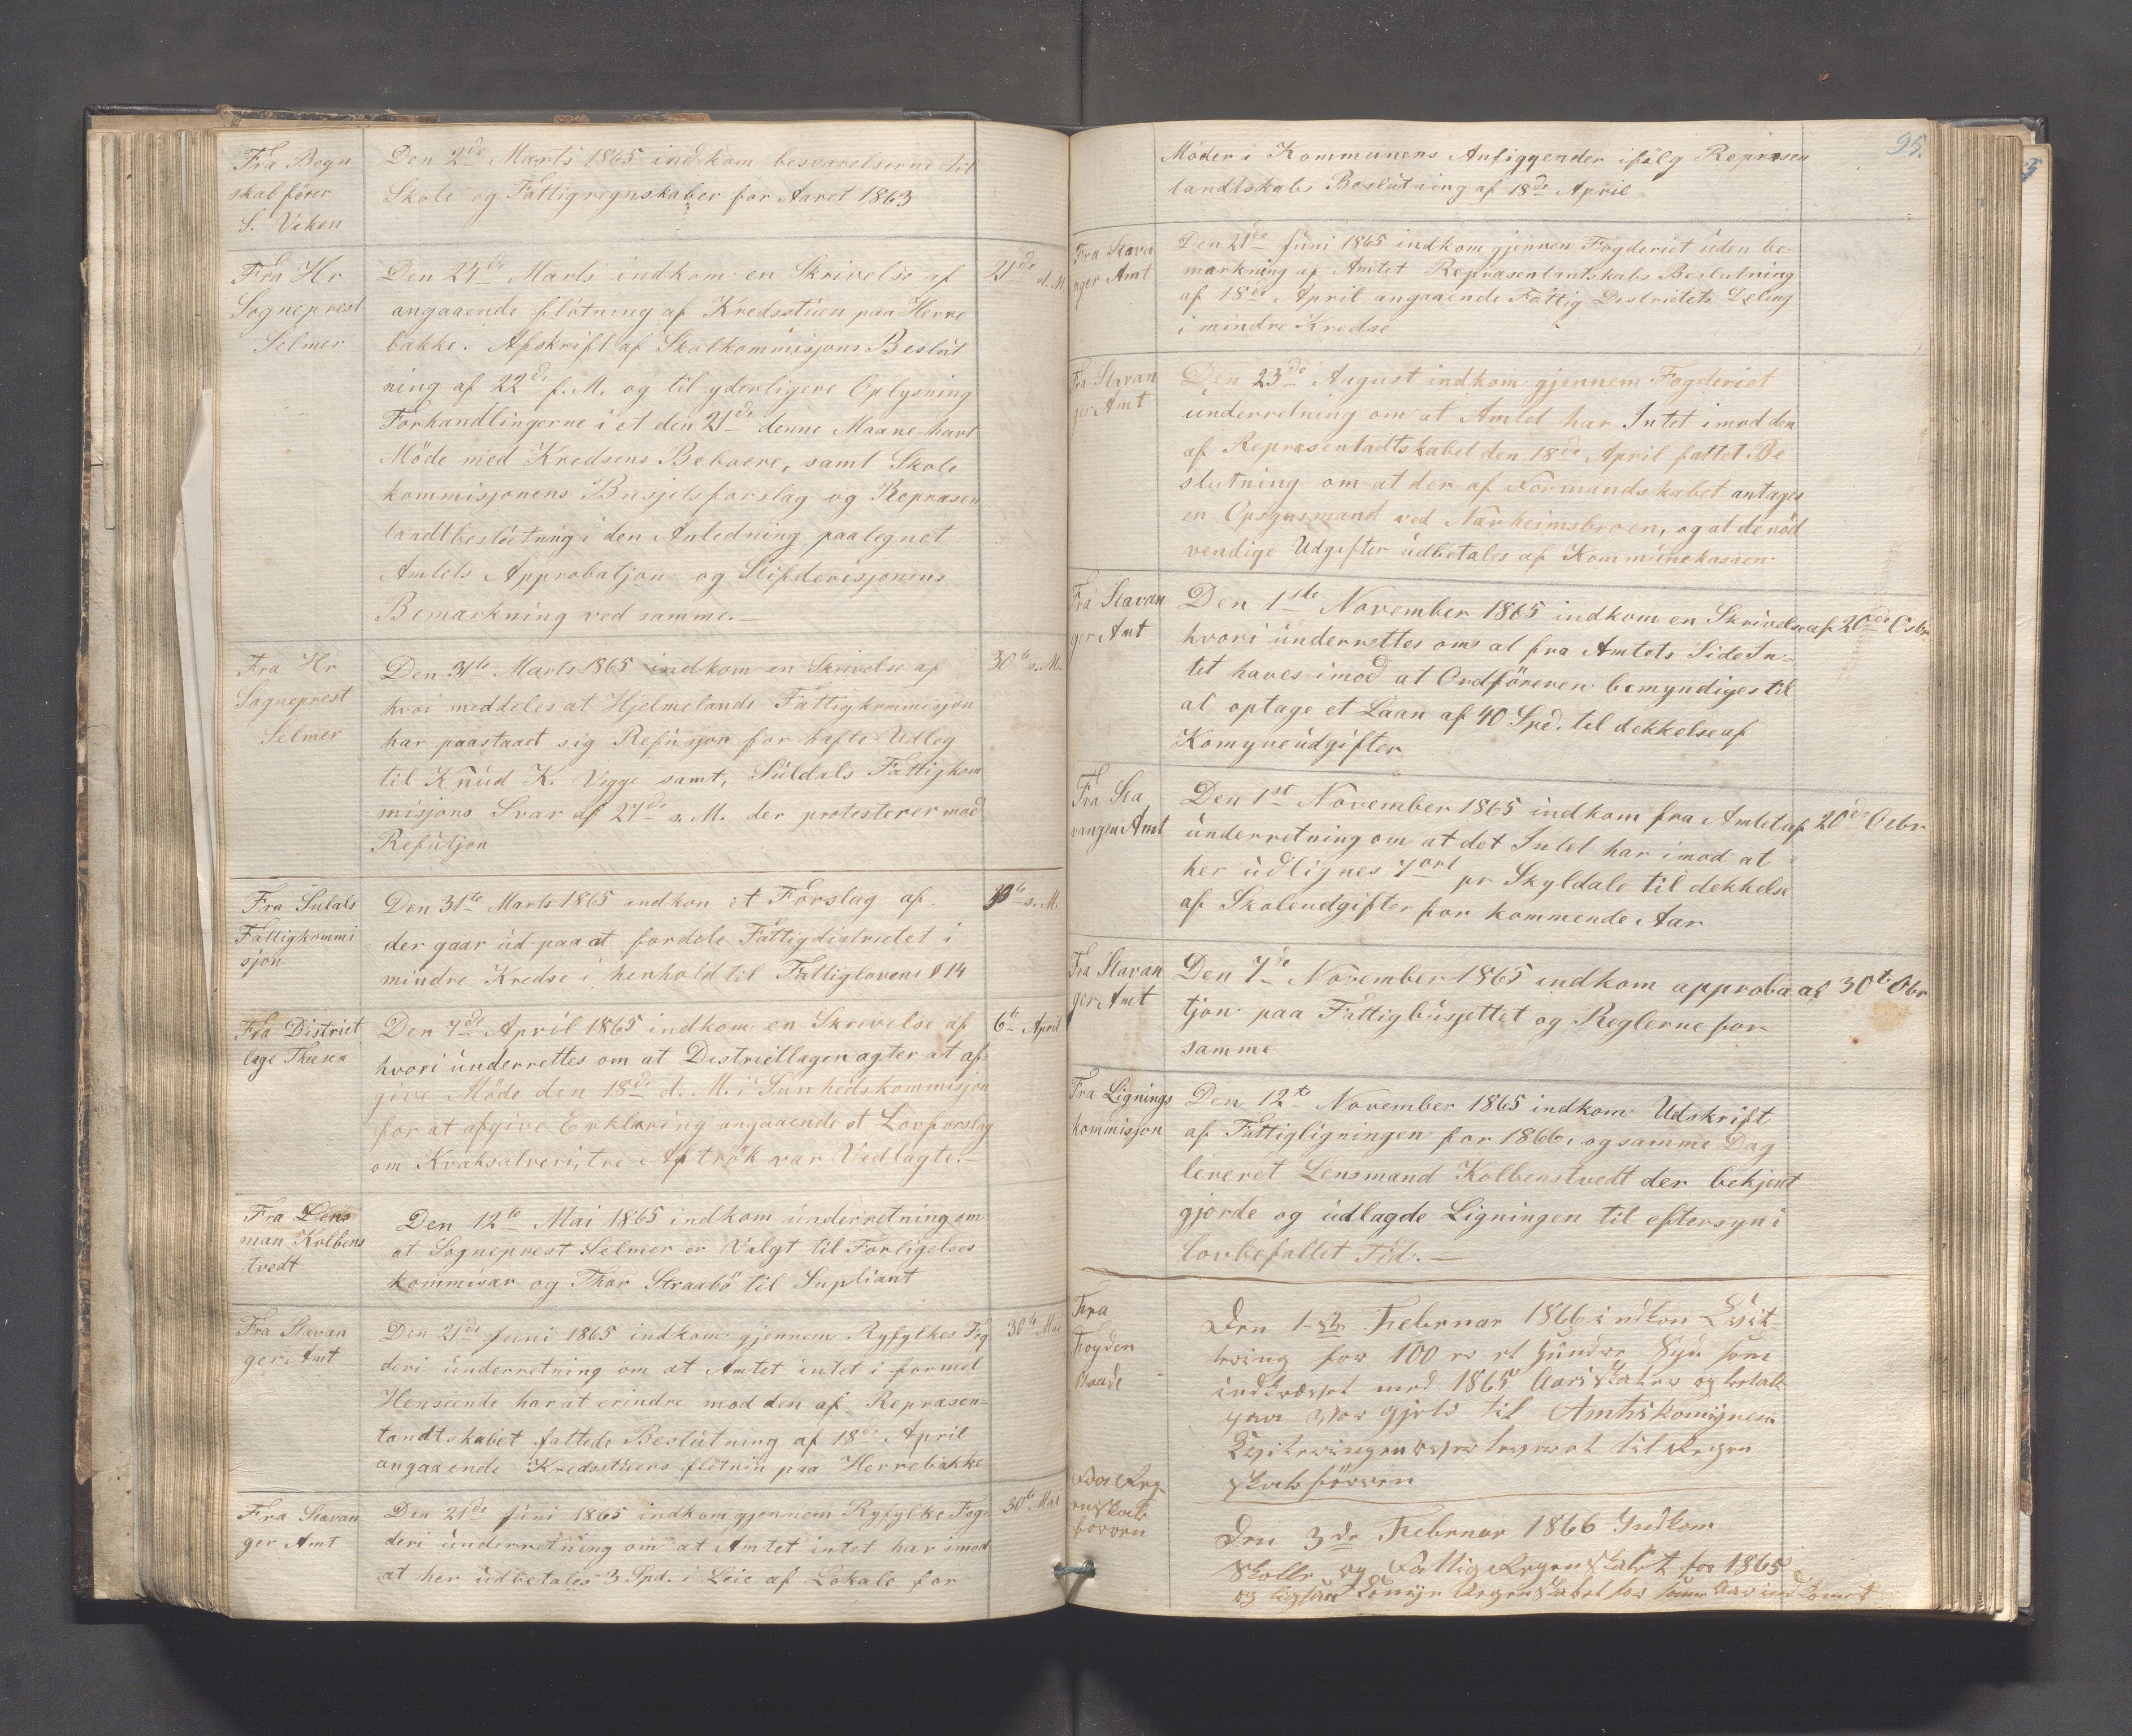 Fra Regn
skabfører
S. Veken
Den 2de Marts 1865 indkom besvarelserne til
Skole og Fattigregnskaber for Aaret 1863
Fra Hr
Sogneprest
Selmer
Den 24de Marts indkom en Skrivelse af
21de d. M.
angaaende flötning af Kredsstuen paa Herre
bakke. Afskrift af Skolkommisjons Beslut
ning af 22de f. M. og til yderligere Oplysning
Forhandlingerne i et den 21de denne Maane havt
Möde med Kredsens Beboere, samt Skole
kommisjonens Busjetsforslag og Repræsen
tandtbeslutning i den Anledning paategnet
Amtets Approbatjon og Stifderesjonens
Bemærkning ved samme.
Fra Hr
Sogneprest
Selmer
Den 31te Marts 1865 indkom en Skrivelse af
30te s. M.
hvori meddeles at Hjelmelands Fattigkommisjon
har paastaaet sig Refusjon for hafte Udleg
til Knud K. Vigge samt, Suldals Fattigkom
misjons Svar af 27de s. M. der protesterer mod
Refutjon
Fra Sulals
Fattigkommi
sjon
Den 31te Marts 1865 indkon et Forslag af
30te s. M.
der gaar ud paa at fordele Fattigdistrictet i
mindre Kredse i henhold til Fattiglovens § 14
Fra District
læge Thesen
Den 7de April 1865 indkom en Skrivelse af
6te April
hvori underrettes om at Districtlægen agter at af-
give Möde den 18de d. M. i Sunhedskommisjon
for at afgive Erklæring angaaende et Lovforslag
om Kvaksalveri, tre Aftrök var Vedlagte.
Fra Lens
man Kolbens
tvedt
Den 12te Mai 1865 indkom underretning om
at Sogneprest Selmer er Valgt til Forligelses
kommisær og Thor Straabö til Supliant
Fra Stavan
ger Amt
Den 21de Juni 1865 indkom gjennem Ryfylkes Fog
30te Mai
deri underretning om at Amtet intet i formel
Henseende har at erindre mod den af Repræsen-
tandtskabet fattede Beslutning af 18de April
angaaende Kredsstuens flötnin paa Herrebakke
Fra Stavan
ger Amt
Den 21de Juni 1865 indkom gjennem Ryfylke Fog-
30te Mai
deri underretning om at Amtet intet har imod
at her udbetales 3 Spd. i Leie af Lokale for
95.
Möder i Kommunens Anliggender ifölg Repræsen
tandtskabs Beslutning af 18de April
Fra Stava
nger Amt
Den 21de Juni 1865 indkom gjennem Fogderiet uden be-
mærkning af Amtet Repræsentantskabs Beslutning
af 18de April angaaende Fattig Districtets Deling
i mindre Kredse
Fra Stavan
ger Amt
Den 23de August indkom gjennem Fogderiet
underretning om at Amtet har Intet imod den
af Repræsentadtskabet den 18de April fattet Be
slutning om at der af Formandskabet antages
en Opsynsmand ved Narheimsbroen, og at de nöd
vendige Udgifter udbetales af Kommunekassen
Fra Stavan
ger Amt
Den 1ste November 1865 indkom en Skrivelse af 20de Octbr
hvori underrettes om at fra Amtets Side In-
tet haves imod at Ordföreren bemyndiges til
at optage et Laan af 40 Spd. til dekkelse af
Komyneudgifter
Fra Sta
vanger Amt
Den 1st November 1865 indkom fra Amtet af 20de Octbr
underretning om at det Intet har imod at
her udlignes 7 ort pr Skyldale til dekkelse
af Skoleudgifter for kommende Aar
Fra Stavan
ger Amt
Den 7de November 1865 indkom approba af 30te Obr
tjon paa Fattigbusjettet og Reglerne for
samme
Fra Lignings
kommisjon
Den 12te November 1865 indkom Udskrift
af Fattigligningen for 1866, og samme Dag
leveret Lensmand Kolbenstvedt der bekjent
gjorde og udlagde Ligningen til eftersyn i
lovbefallet Tid.
Fra
Fogden
Den 1ste Februar 1866 indkon Qvit-
tering for 100 er et Hundre Spd som
indkrævet med 1865 Aars Skatter og
gjeld til Amtskomynen
Qviteringen leveret til Regen
skabsföreren
Fra Reg
enskabs
föreren
Den 3de Februar 1866 Indkom
Skolle og Fattig Regenskabet for 1865
og ligesaa Komyn Regenskabet for samme Aar indkomet